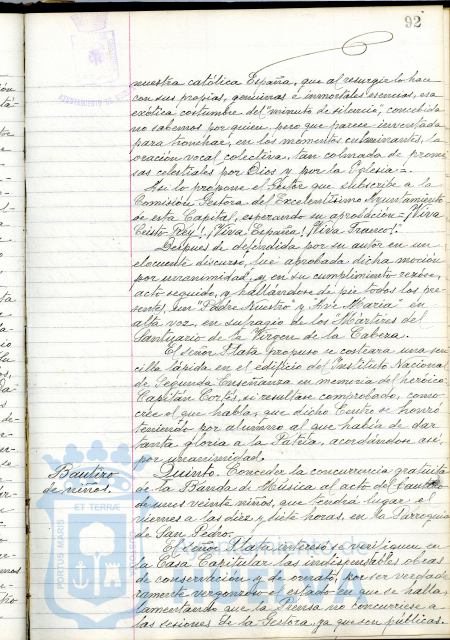 92
nuestra católica España, que al resurgir lo hace
con sus propias, genuinas e inmortales esencias, esa
exótica costumbre del "minuto de silencio", concebida
no sabemos por quien, pero que parece inventada
para en los momentos culminantes, la
oración vocal colectiva, tan colmada de prome-
sas celestiales por Dios y por la Iglesia =.
Asi lo propone el Gestor que subscribe a la
Comisión Gestora del Excelentísimo Ayuntamiento
de esta Capital, esperando su aprobación = ¡Viva
Cristo Rey!, ¡Viva España! ¡Viva Franco!"
Despues de defendida por su autor en un
elocuente discurso, fué aprobada dicha moción
por unanimidad, y en su cumplimiento rezóse,
acto seguido, y hallándose de pié todos los pre-
sentes, un "Padre Nuestro" y "Ave Maria" en
alta voz, en sufragio de los Mártires del
Santuario de la Virgen de la Cabeza.
El señor Plata propuso se costeara una sen-
cilla lápida en el edificio del Instituto Nacional
de Segunda Enseñanza en memoria del heróico
Capitán Cortés, si resultase comprobado, como
cree el que habla, que dicho Centro se honró
teniendo por alumno al que habia de dar
tanta gloria a la Patria, acordándose así,
por unanimidad.
Bautizo
de niños.
Quinto. Conceder la concurrencia gratuita
de la Banda de Música al acto del bautizo
de unos veinte niños, que tendrá lugar el
viernes a las diez y siete horas, en la Parroquia
de San Pedro.
El señor Plata interesó se verifiquen en
la Casa Capitular las indispensables obras
de conservación y de ornato, por ser verdade-
ramente vergonzoso el estado en que se halla,
lamentando que la Prensa no concurriese a
las sesiones de la Gestora, ya que son públicas.
PORTUS MARIS
ET TERRAE